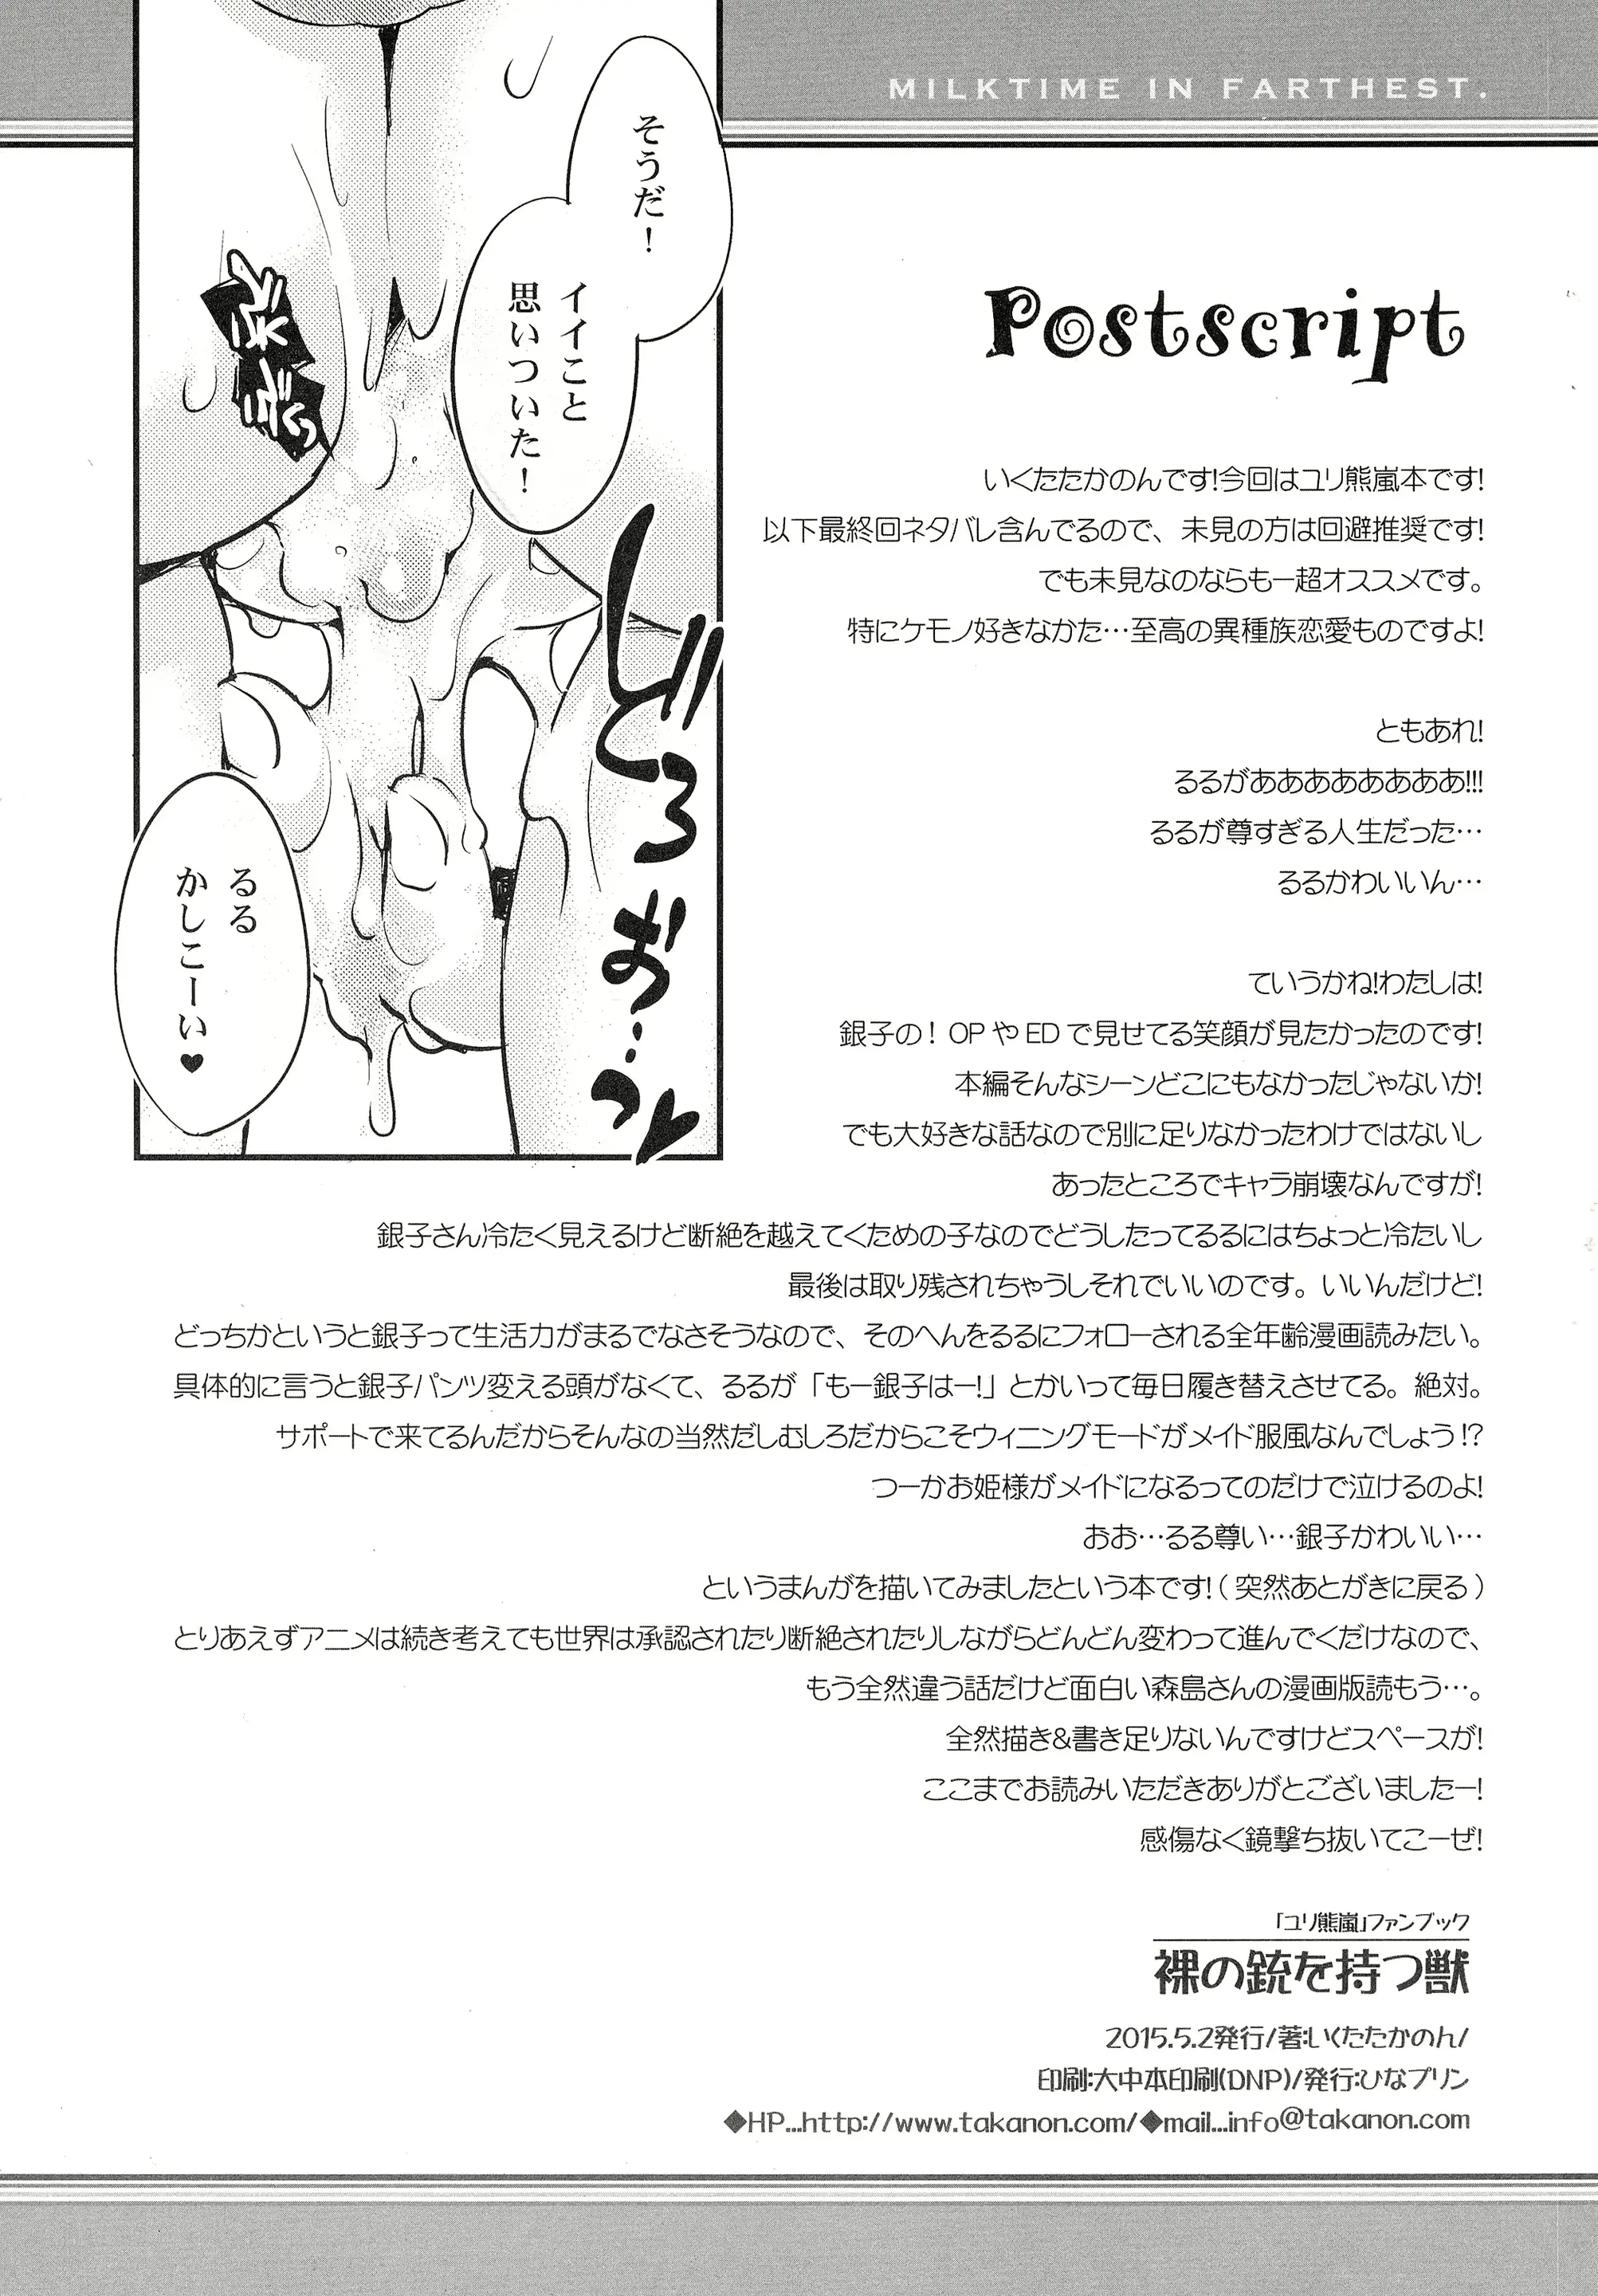 MILKTIME IN FARTHEST.
そうだ！
イイこと
思いついた！
どろ
お…
っ♥
るる
かしこーい♥
Postscript
いくたたかのんです!今回はユリ熊嵐本です!
以下最終回ネタバレ含んでるので、未見の方は回避推奨です!
でも未見なのならもー超オススメです。
特にケモノ好きなかた…至高の異種族恋愛ものですよ!
ともあれ!
るるがああああああああ!!!
るるが尊すぎる人生だった…
るるかわいいん…
ていうかね!わたしは!
銀子の! OPやEDで見せてる笑顔が見たかったのです!
本編そんなシーンどこにもなかったじゃないか!
でも大好きな話なので別に足りなかったわけではないし
あったところでキャラ崩壊なんですが!
銀子さん冷たく見えるけど断絶を越えてくための子なのでどうしたってるるにはちょっと冷たいし
最後は取り残されちゃうしそれでいいのです。いいんだけど!
どっちかというと銀子って生活力がまるでなさそうなので、そのへんをるるにフォローされる全年齢漫画読みたい。
具体的に言うと銀子パンツ変える頭がなくて、るるが「もー銀子はー!」とかいって毎日履き替えさせてる。絶対。
サポートで来てるんだからそんなの当然だしむしろだからこそウィニングモードがメイド服風なんでしょう!?
つーかお姫様がメイドになるってのだけで泣けるのよ!
おお…るる尊い…銀子かわいい…
というまんがを描いてみましたという本です!(突然あとがきに戻る)
とりあえずアニメは続き考えても世界は承認されたり断絶されたりしながらどんどん変わって進んでくだけなので、
もう全然違う話だけど面白い森島さんの漫画版読もう…。
全然描き&書き足りないんですけどスペースが!
ここまでお読みいただきありがとございましたー!
感傷なく鏡撃ち抜いてこーぜ!
「ユリ熊嵐」ファンブック
裸の銃を持つ獣
2015.5.2発行/著:いくたたかのん/
印刷:大中本印刷(DNP)/発行:ひなプリン
◆HP...http://www.takanon.com/◆mail...info@takanon.com